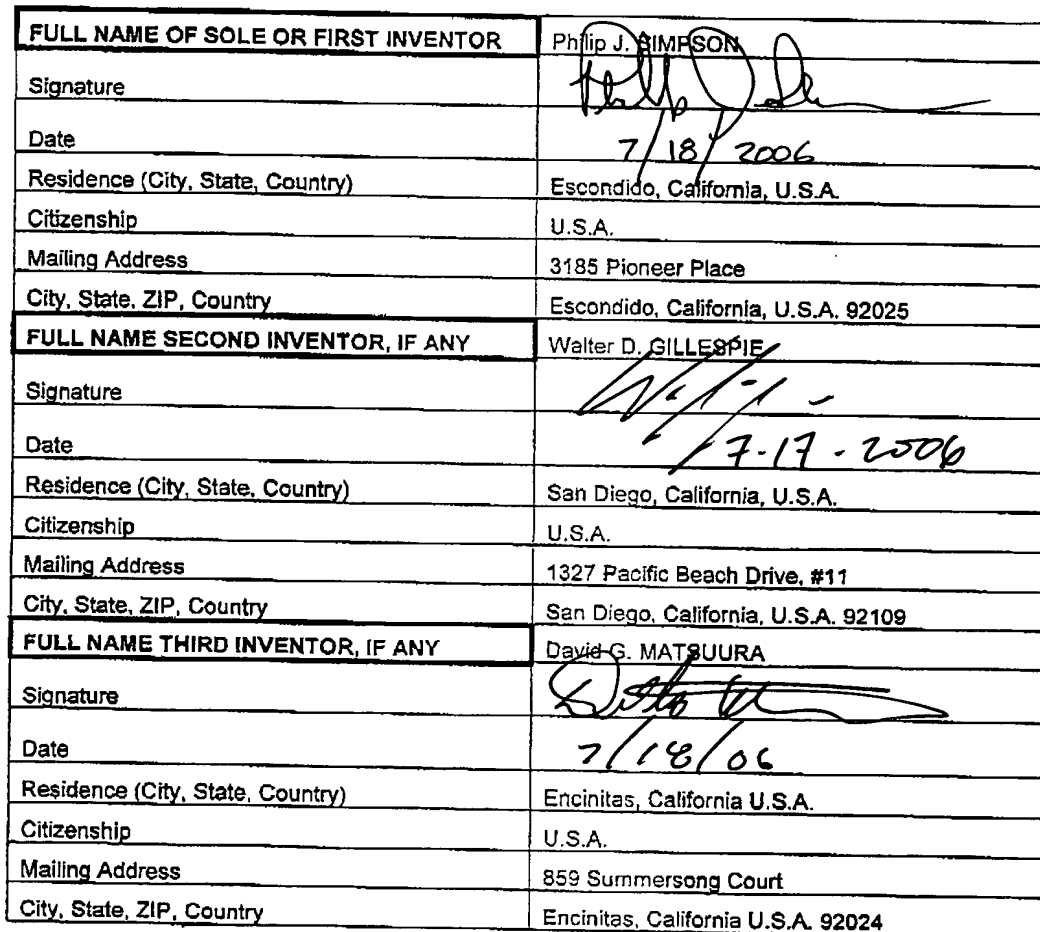 FULL NAME OF SOLE OR FIRST INVENTOR Philip J. SIMPSON
Signature
Date 7/18/2006
Residence (City, State, Country) Escondido, California, U.S.A.
Citizenship U.S.A.
Mailing Address 3185 Pioneer Place
City, State, ZIP, Country Escondido, California, U.S.A. 92025
FULL NAME SECOND INVENTOR, IF ANY Walter D. GILLESPIE
Signature
Date 7-17-2006
Residence (City, State, Country) San Diego, California, U.S.A.
Citizenship U.S.A.
Mailing Address 1327 Pacific Beach Drive, #11
City, State, ZIP, Country San Diego, California, U.S.A. 92109
FULL NAME THIRD INVENTOR, IF ANY David G. MATSUURA
Signature
Date 7/18/06
Residence (City, State, Country) Encinitas, California U.S.A.
Citizenship U.S.A.
Mailing Address 859 Summersong Court
City, State, ZIP, Country Encinitas, California U.S.A. 92024